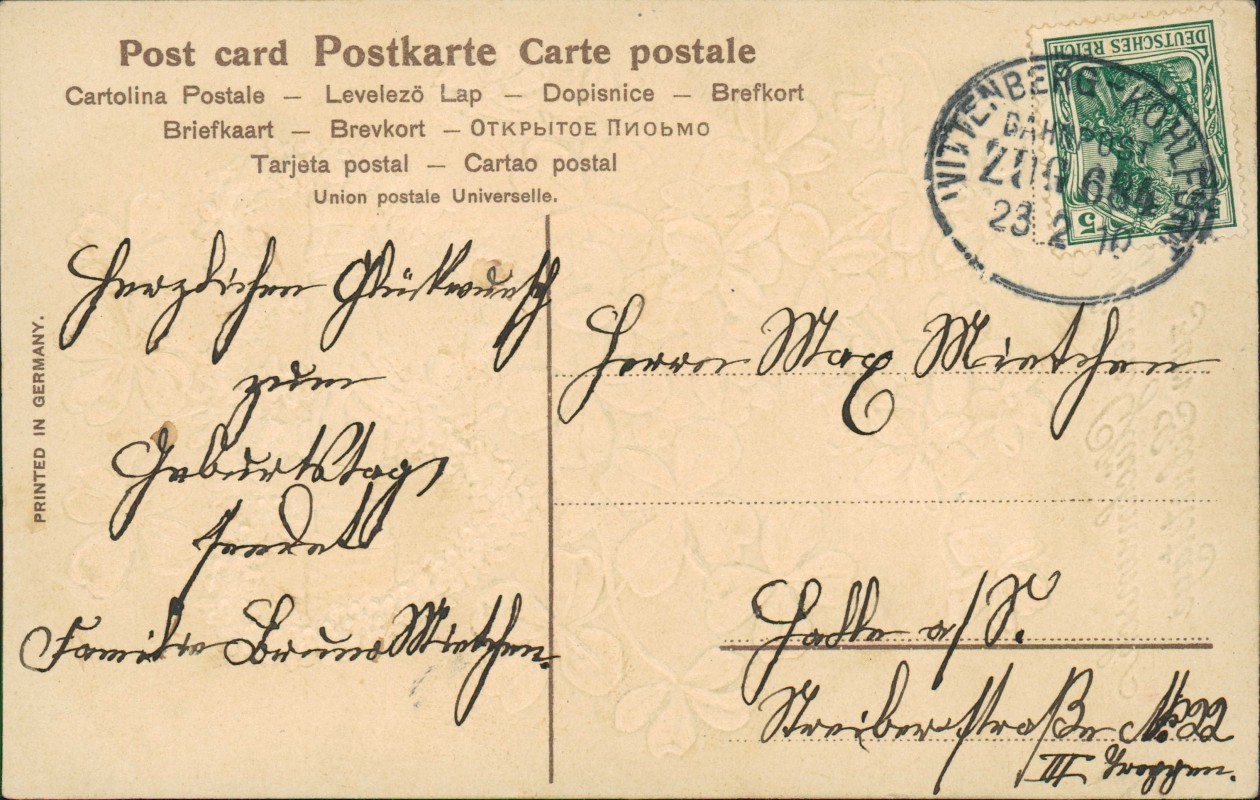 Post card Postkarte Carte postale
Cartolina Postale — Levelezö Lap — Dopisnice — Brefkort
Briefkaart — Brevkort — Открытое Пиоьмо
Tarjeta postal — Cartao postal
Union postale Universelle.
DEUTSCHES REICH
5
WITTENBERG - KOHLFURT
BAHNPOST
ZUG 684
23 2 10
PRINTED IN GERMANY.
Herzlichen Glückwunsch
zum
Geburtstag
sendet
Familie Bruno Mietchen.
Herrn Max Mietchen
Halle a/S.
Streiberstraße No. 22
III Treppen.